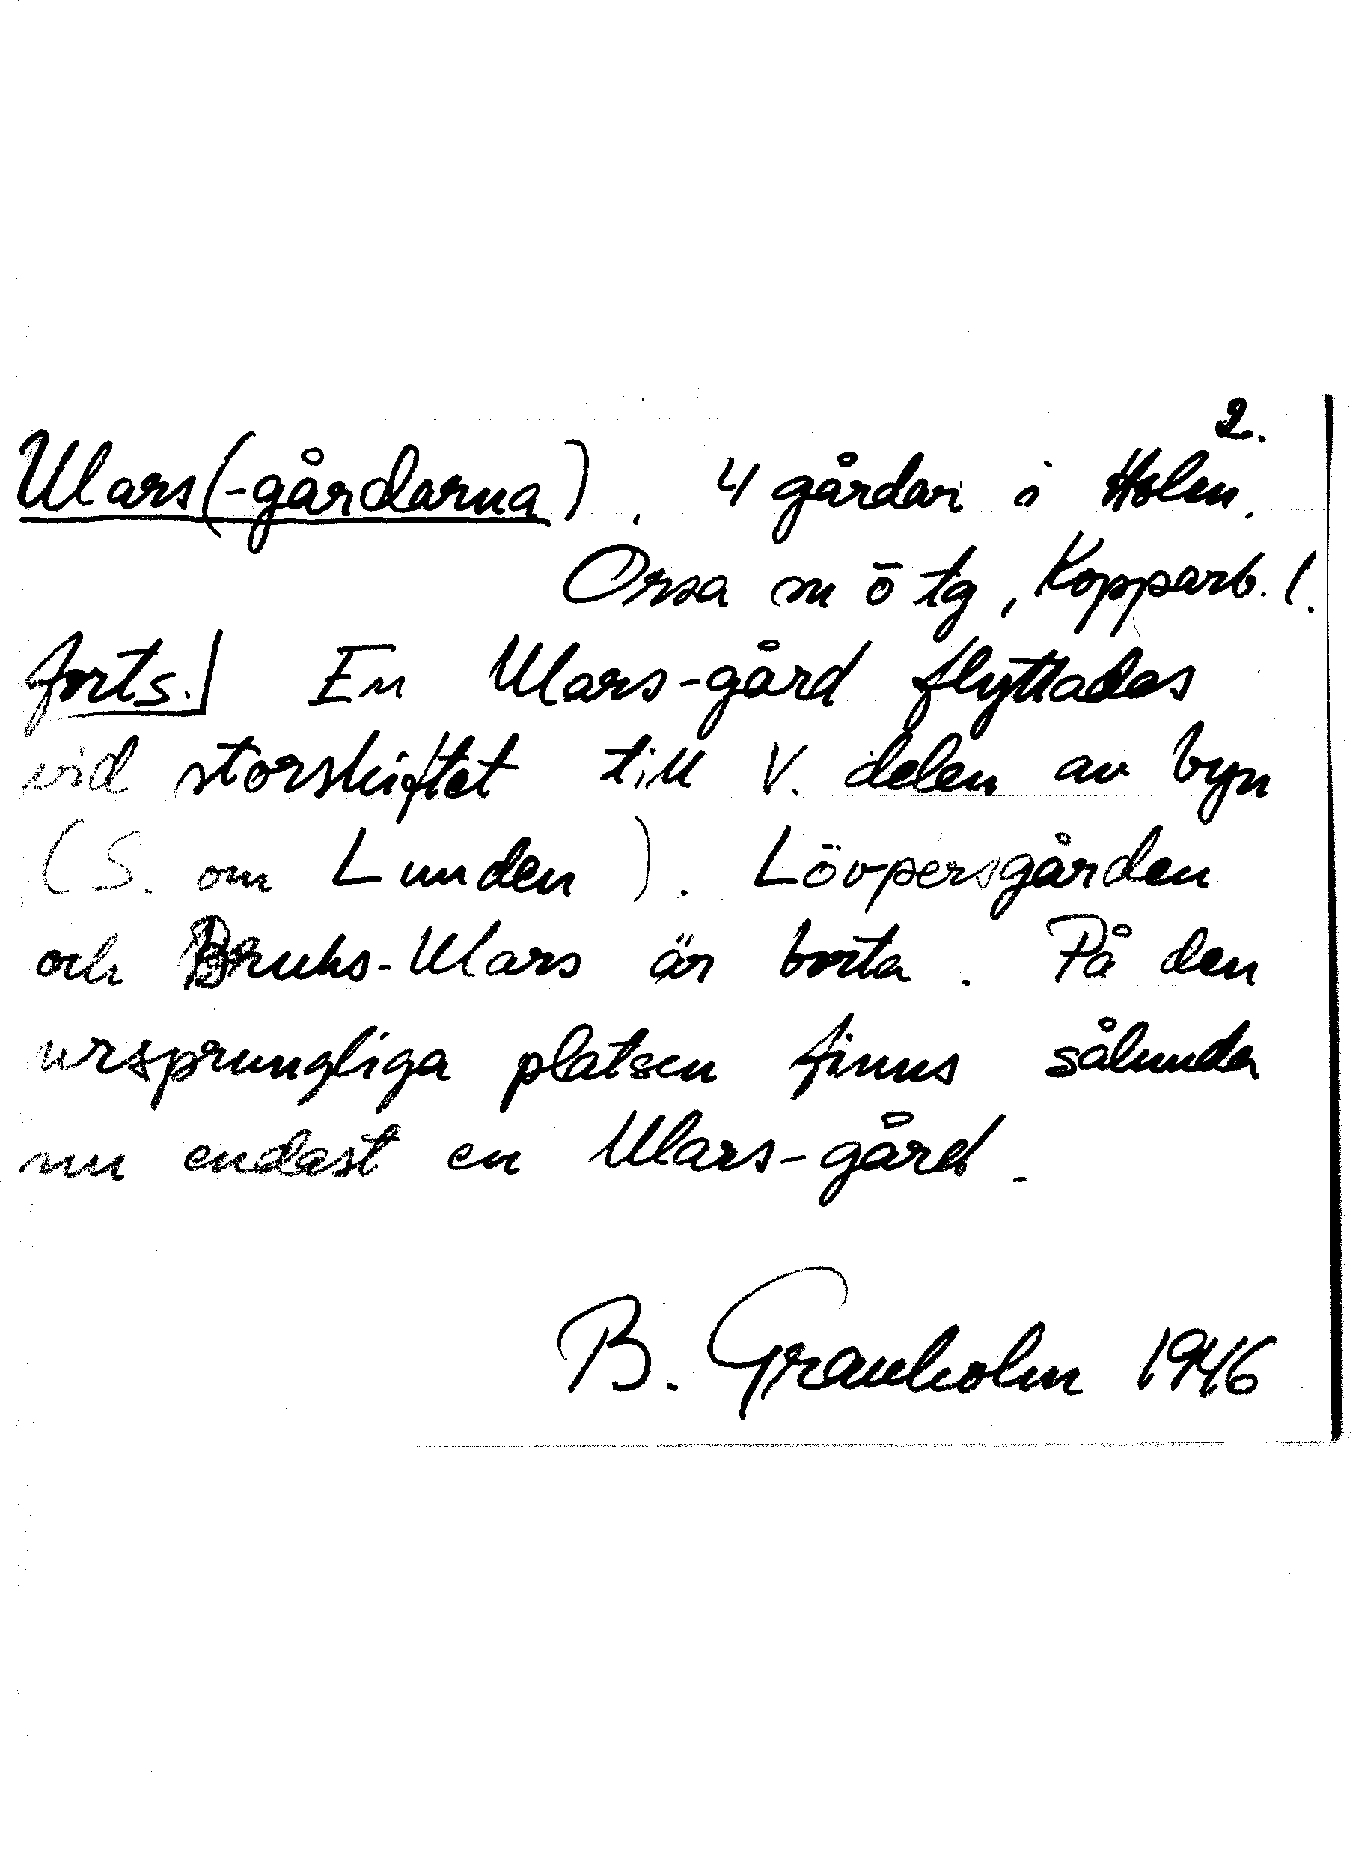 2.
Ulars(-gårdarna), 4 gårdar i Holen.
Orsa m ö tg, Kopparb. l.
forts.| En Ulars-gård flyttades
vid storskiftet till V. delen av byn
(S. om Lunden). Lövpersgården
och Bruks-Ulars är borta. På den
ursprungliga platsen finns sålunda
nu endast en Ulars-gård.
B. Granholm 1946